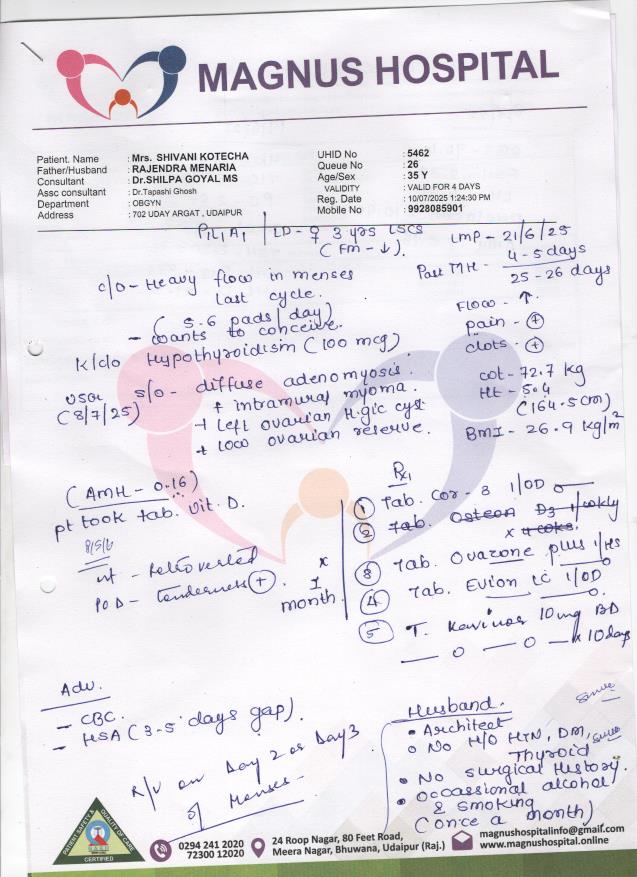 MAGNUS HOSPITAL
Patient. Name : Mrs. SHIVANI KOTECHA
Father/Husband : RAJENDRA MENARIA
Consultant : Dr.SHILPA GOYAL MS
Assc consultant : Dr.Tapashi Ghosh
Department : OBGYN
Address : 702 UDAY ARGAT , UDAIPUR
UHID No : 5462
Queue No : 26
Age/Sex : 35 Y
VALIDITY : VALID FOR 4 DAYS
Reg. Date : 10/07/2025 1:24:30 PM
Mobile No : 9928085901
P1L1A1 | LD - ♀ 3 yrs LSCS
(FM - ↓).
LMP - 21/6/25
Past MH - 4-5 days
25-26 days
Flow - ↑
pain - +
clots - +
c/o - Heavy flow in menses
last cycle.
(5-6 pads/day)
- wants to conceive.
K/c/o Hypothyroidism (100 mcg)
USG (8/7/25) s/o - diffuse adenomyosis.
+ intramural myoma.
+ left ovarian H.gic cyst
+ low ovarian reserve.
wt - 72.7 kg
Ht - 5.4
(164.5cm)
BMI - 26.9 kg/m²
(AMH - 0.16)
pt took tab. Vit. D.
ut - Retroverted
POD - tenderness +
x
1
month
Rx
① Tab. Cor-3 1/OD
② Tab. Osteon D3 1/wkly
x 4 wks.
③ Tab. Ovazone plus 1/HS
④ Tab. Evion LC 1/OD
⑤ T. 10 mg BD
— o — o — x 10 days
Adv.
- CBC.
- HSA (3-5 days gap).
R/V on Day 2 or Day 3
of Menses -
Husband.
• Architect
• No H/O HTN, DM,
Thyroid
• No surgical History.
• Occassional alcohol
& smoking
(once a month)
PATIENT SAFETY & QUALITY OF CARE
CERTIFIED
0294 241 2020
72300 12020
24 Roop Nagar, 80 Feet Road,
Meera Nagar, Bhuwana, Udaipur (Raj.)
magnushospitalinfo@gmail.com
www.magnushospital.online